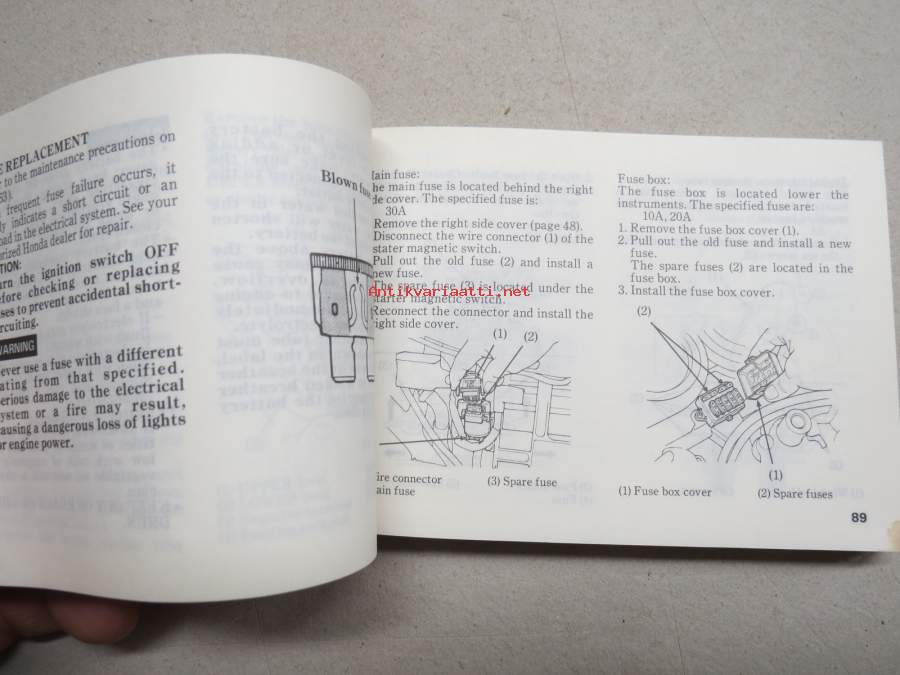 E REPLACEMENT
to the maintenance precautions on
53).
frequent fuse failure occurs, it
ly indicates a short circuit or an
oad in the electrical system. See your
orized Honda dealer for repair.
TION:
urn the ignition switch OFF
efore checking or replacing
ses to prevent accidental short-
rcuiting.
WARNING
ever use a fuse with a different
ating from that specified.
erious damage to the electrical
ystem or a fire may result,
ausing a dangerous loss of lights
or engine power.
Blown fuse
ain fuse:
he main fuse is located behind the right
de cover. The specified fuse is:
30A
Remove the right side cover (page 48).
Disconnect the wire connector (1) of the
stater magnetic switch.
Pull out the old fuse (2) and install a
new fuse.
The spare fuse (3) is located under the
starter magnetic switch.
Reconnect the connector and install the
right side cover.
(1) (2)
ire connector
(3) Spare fuse
ain fuse
Fuse box:
The fuse box is located lower the
instruments. The specified fuse are:
10A, 20A
1. Remove the fuse box cover (1).
2. Pull out the old fuse and install a new
fuse.
The spare fuses (2) are located in the
fuse box.
3. Install the fuse box cover.
(2)
(1)
(1) Fuse box cover (2) Spare fuses
89
Antikvariaatti.net